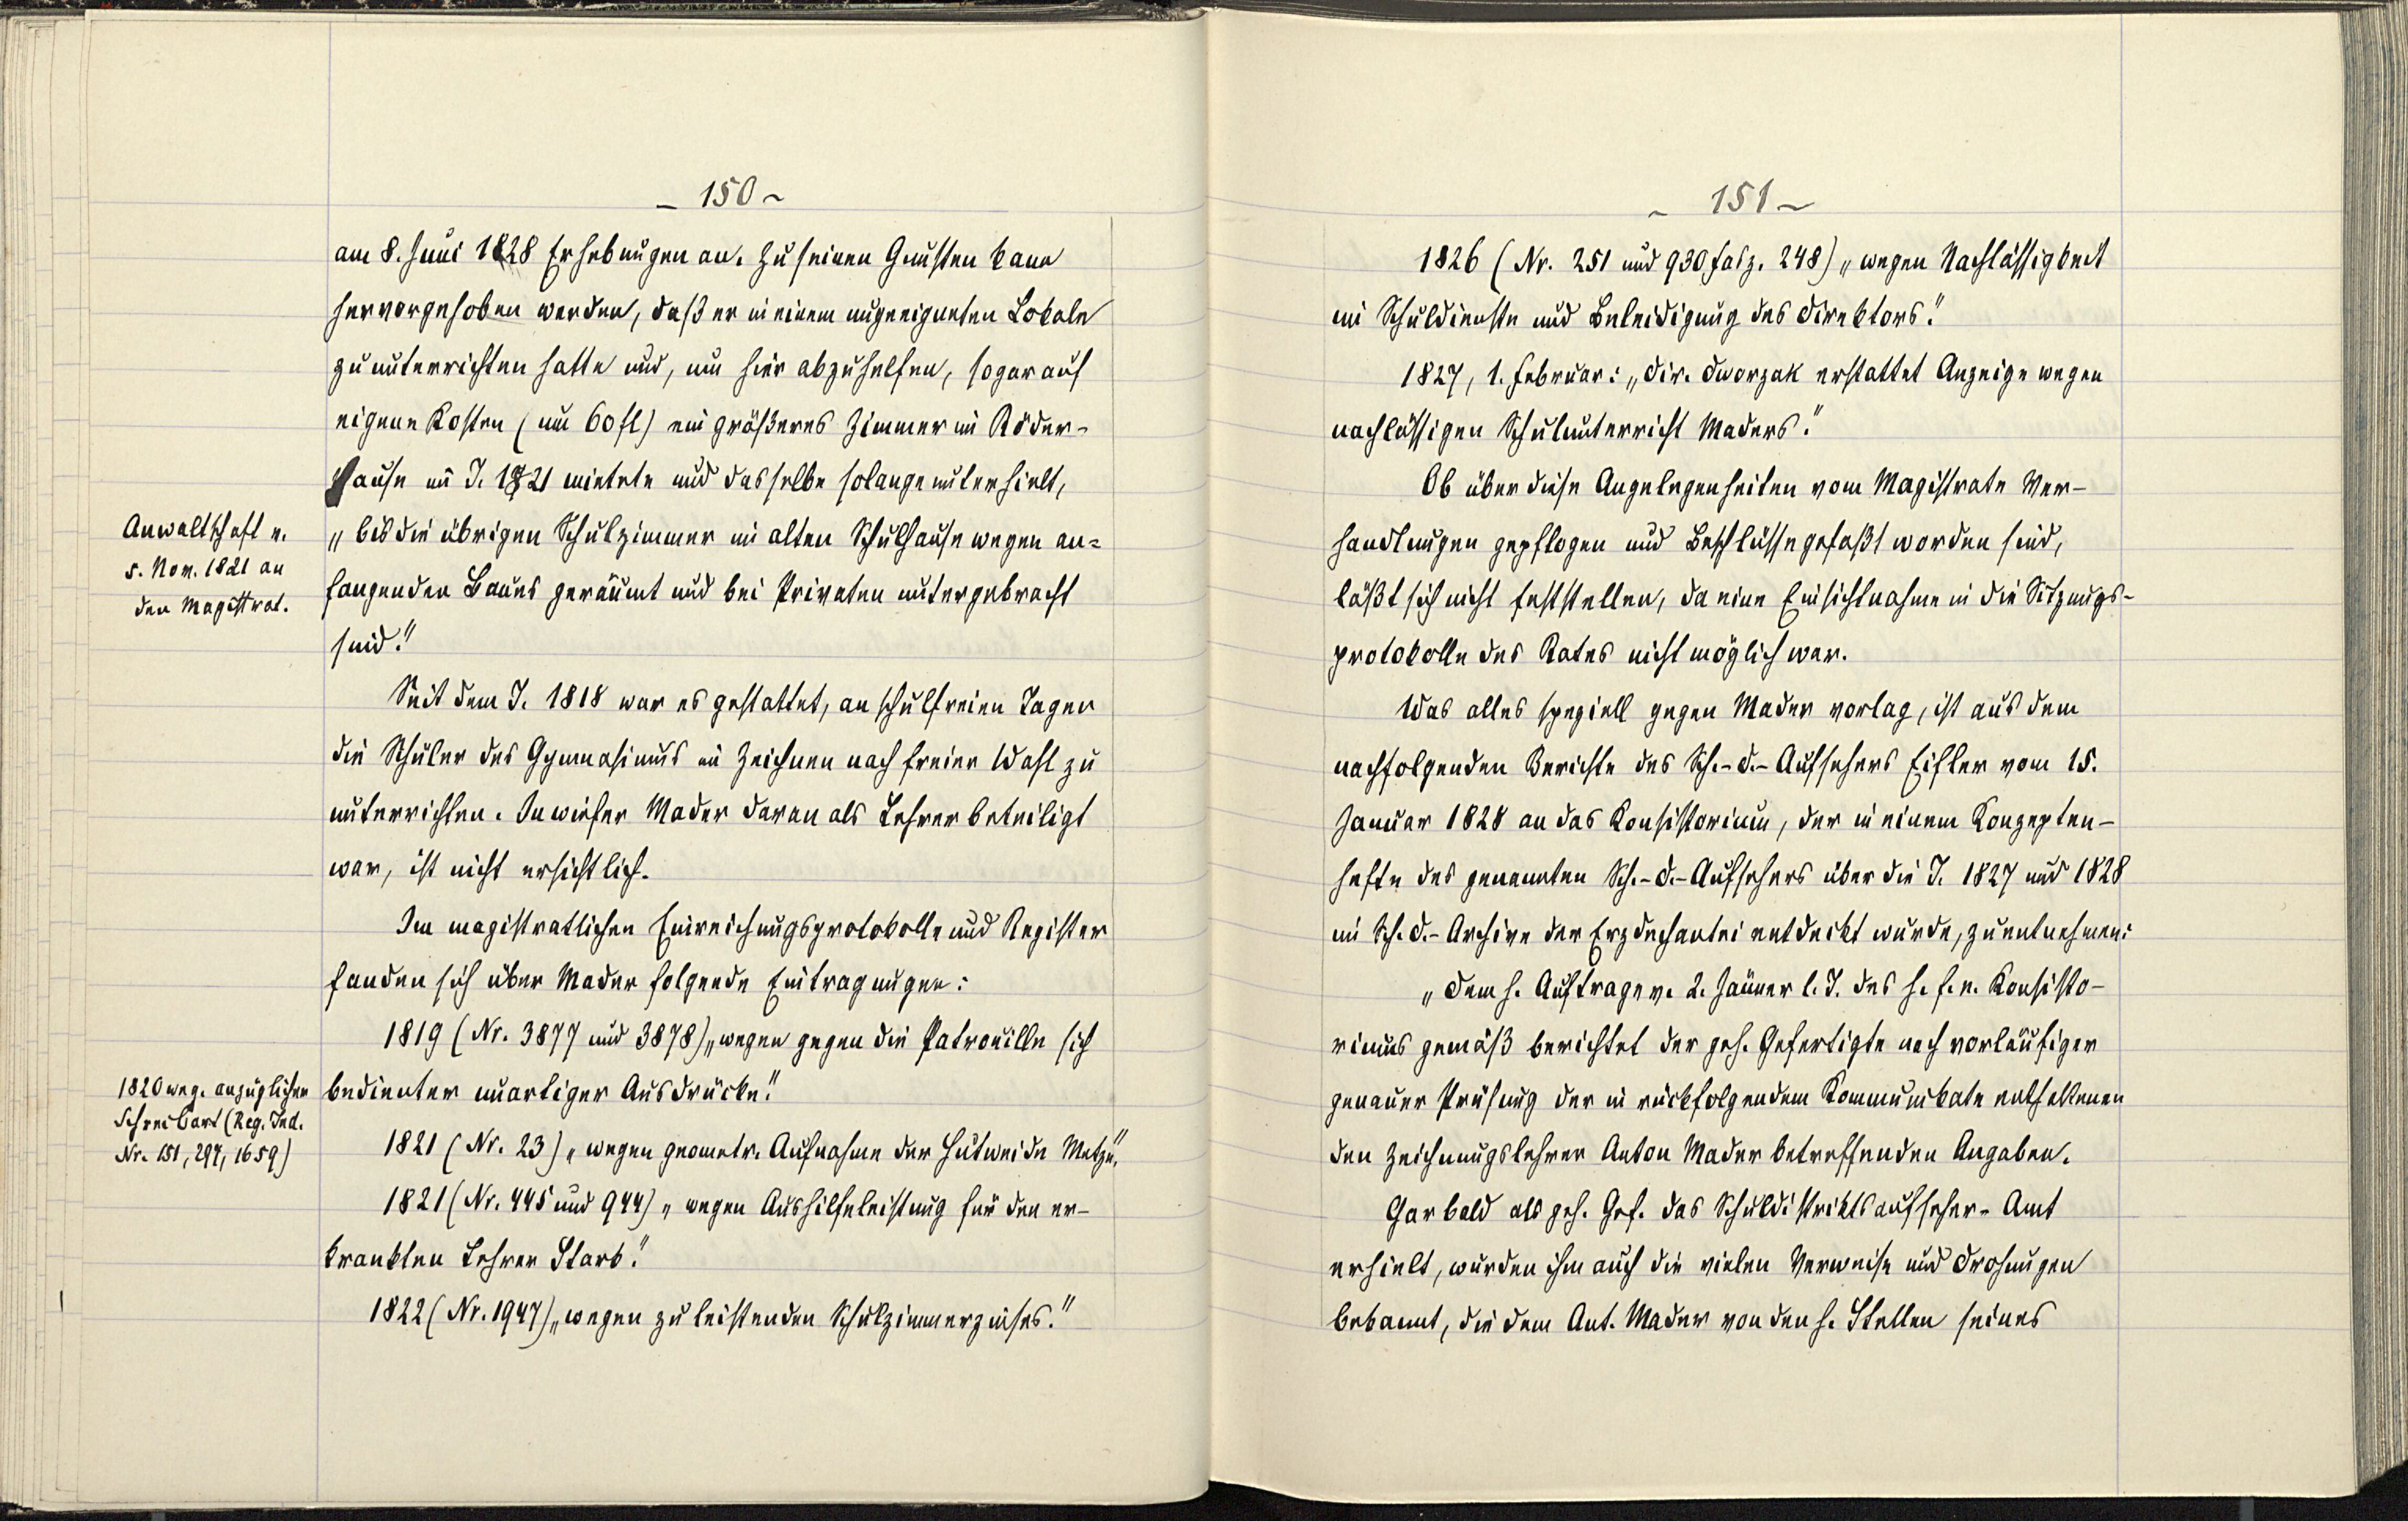 - 150 -
am 8. Juni 1828 Erhebungen an. Zu seinen Gunsten kann
hervorgehoben werden, daß er in einem ungeeigneten Lokale
zu unterrichten hatte und, um hier abzuhelfen, sogar auf
eigene Kosten (um 60 fl) ein größeres Zimmer im Röder-
hause im J. 1821 mietete und dasselbe solange unterhielt,
„bis die übrigen Schulzimmer im alten Schulhause wegen an-
fangenden Baues geräumt und bei Privaten untergebracht
sind."
Anwaltschaft v.
5. Nov. 1821 an
den Magistrat.
Seit dem J. 1818 war es gestattet, an schulfreien Tagen
die Schüler des Gymnasiums im Zeichnen nach freier Wahl zu
unterrichten. Inwiefern Mader daran als Lehrer beteiligt
war, ist nicht ersichtlich.
Im magistratlichen Einreichungsprotokolle und Register
fanden sich über Mader folgende Eintragungen:
1819 (Nr. 3877 und 3878) „wegen gegen die Patrouille sich
bedienter unartiger Ausdrücke."
1820 weg. anzüglicher
Schreibart (Reg. Ind.
Nr. 151, 297, 1659)
1821 (Nr. 23) „wegen geometr. Aufnahme der Hutweide Metzu."
1821 (Nr. 445 und 944) „wegen Aushilfeleistung für den er-
krankten Lehrer Stark."
1822 (Nr. 1947) „wegen zu leistenden Schulzimmerzinses."
- 151 -
1826 (Nr. 251 und 930 Fasz. 248) „wegen Nachlässigkeit
im Schuldienste und Beleidigung des Direktors."
1827, 1. Februar: „Dir. Dworzak erstattet Anzeige wegen
nachlässigen Schulunterricht Maders."
Ob über diese Angelegenheiten vom Magistrate Ver-
handlungen gepflogen und Beschlüsse gefaßt worden sind,
läßt sich nicht feststellen, da eine Einsichtnahme in die Sitzungs-
protokolle des Rates nicht möglich war.
Was alles speziell gegen Mader vorlag, ist aus dem
nachfolgenden Berichte des Sch.-D.-Aufsehers Eisler vom 15.
Januar 1828 an das Konsistorium, der in einem Konzepten-
hefte des genannten Sch.-D.-Aufsehers über die J. 1827 und 1828
im Sch.D.-Archive der Erzdechantei entdeckt wurde, zu entnehmen:
„Dem h. Auftrage v. 2. Jänner l. J. des h. f. e. Konsisto-
riums gemäß berichtet der geh. Gefertigte nach vorläufiger
genauer Prüfung der in rückfolgendem Kommunikate enthaltenen
den Zeichnungslehrer Anton Mader betreffenden Angaben.
Gar bald als geh. Gef. das Schuldistriktsaufseher-Amt
erhielt, wurden ihm auch die vielen Verweise und Drohungen
bekannt, die dem Ant. Mader von den h. Stellen seines